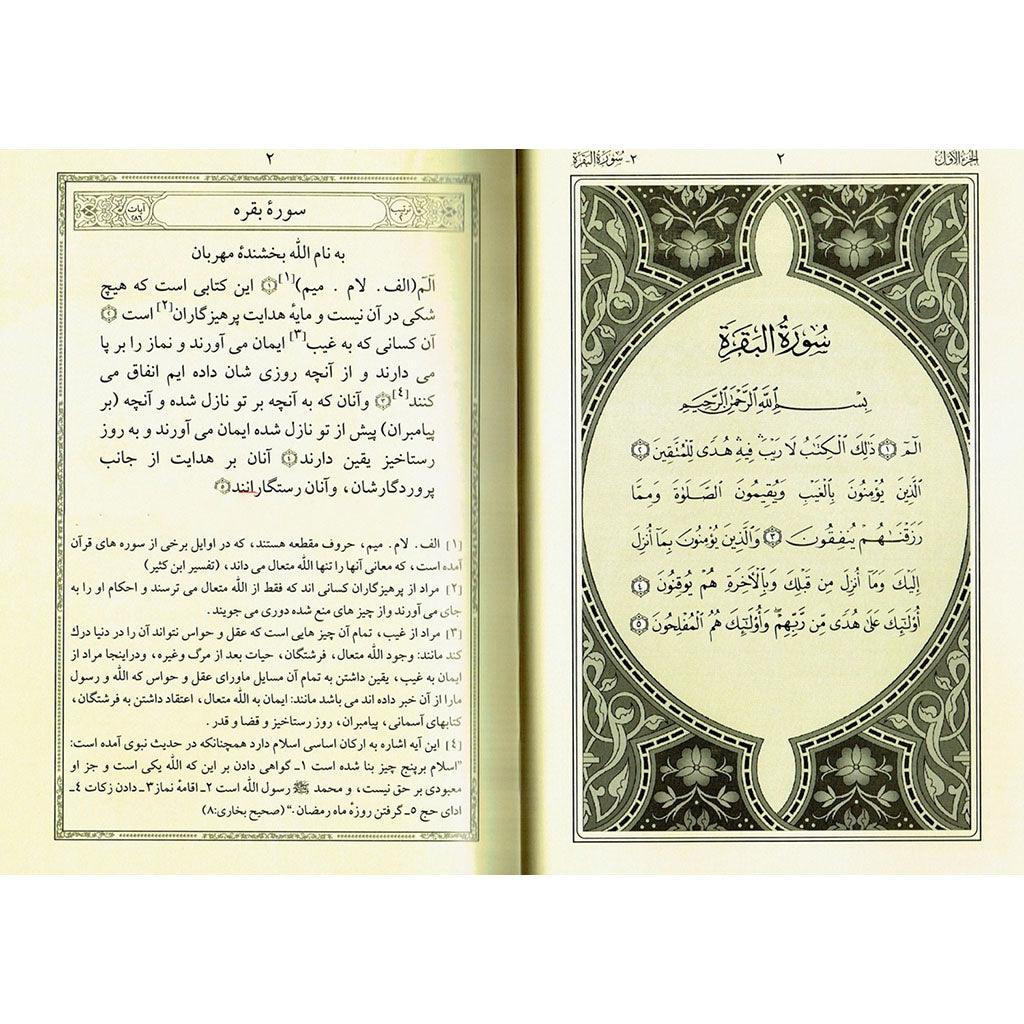 الجزء الأول
٢
٢- سورة البقرة
سُورَةُ البَقَرَةِ
بِسْمِ اللَّهِ الرَّحْمَٰنِ الرَّحِيمِ
الٓمٓ ۝١ ذَٰلِكَ ٱلْكِتَٰبُ لَا رَيْبَ ۛ فِيهِ ۛ هُدًى لِّلْمُتَّقِينَ ۝٢
ٱلَّذِينَ يُؤْمِنُونَ بِٱلْغَيْبِ وَيُقِيمُونَ ٱلصَّلَوٰةَ وَمِمَّا
رَزَقْنَٰهُمْ يُنفِقُونَ ۝٣ وَٱلَّذِينَ يُؤْمِنُونَ بِمَآ أُنزِلَ
إِلَيْكَ وَمَآ أُنزِلَ مِن قَبْلِكَ وَبِٱلْءَاخِرَةِ هُمْ يُوقِنُونَ ۝٤
أُو۟لَٰٓئِكَ عَلَىٰ هُدًى مِّن رَّبِّهِمْ ۖ وَأُو۟لَٰٓئِكَ هُمُ ٱلْمُفْلِحُونَ ۝٥
٢
ترتیب ٢
سورهٔ بقره
آیات ٢٨٦
به نام الله بخشندهٔ مهربان
آلٓمٓ(الف. لام . میم)[١] ۝١ این کتابی است که هیچ
شکی در آن نیست و مایهٔ هدایت پرهیزگاران[٢] است ۝٢
آن کسانی که به غیب[٣] ایمان می آورند و نماز را بر پا
می دارند و از آنچه روزی شان داده ایم انفاق می
کنند[٤] ۝٣ وآنان که به آنچه بر تو نازل شده و آنچه (بر
پیامبران) پیش از تو نازل شده ایمان می آورند و به روز
رستاخیز یقین دارند ۝٤ آنان بر هدایت از جانب
پروردگارشان، وآنان رستگارانند ۝٥
[١] الف. لام. میم، حروف مقطعه هستند، که در اوایل برخی از سوره های قرآن
آمده است، که معانی آنها را تنها الله متعال می داند، (تفسیر ابن کثیر)
[٢] مراد از پرهیزگاران کسانی اند که فقط از الله متعال می ترسند و احکام او را به
جای می آورند واز چیز های منع شده دوری می جویند.
[٣] مراد از غیب، تمام آن چیز هایی است که عقل و حواس نتواند آن را در دنیا درك
کند مانند: وجود الله متعال، فرشتگان، حیات بعد از مرگ وغیره، ودراینجا مراد از
ایمان به غیب، یقین داشتن به تمام آن مسایل ماورای عقل و حواس که الله و رسول
مارا از آن خبر داده اند می باشد مانند: ایمان به الله متعال، اعتقاد داشتن به فرشتگان،
کتابهای آسمانی، پیامبران، روز رستاخیز و قضا و قدر .
[٤] این آیه اشاره به ارکان اساسی اسلام دارد همچنانکه در حدیث نبوی آمده است:
"اسلام برپنج چیز بنا شده است ١ـ گواهی دادن بر این که الله یکی است و جز او
معبودی بر حق نیست، و محمد ﷺ رسول الله است ٢ـ اقامهٔ نماز ٣ـ دادن زکات ٤ـ
ادای حج ٥ـ گرفتن روزهٔ ماه رمضان." (صحیح بخاری:٨)